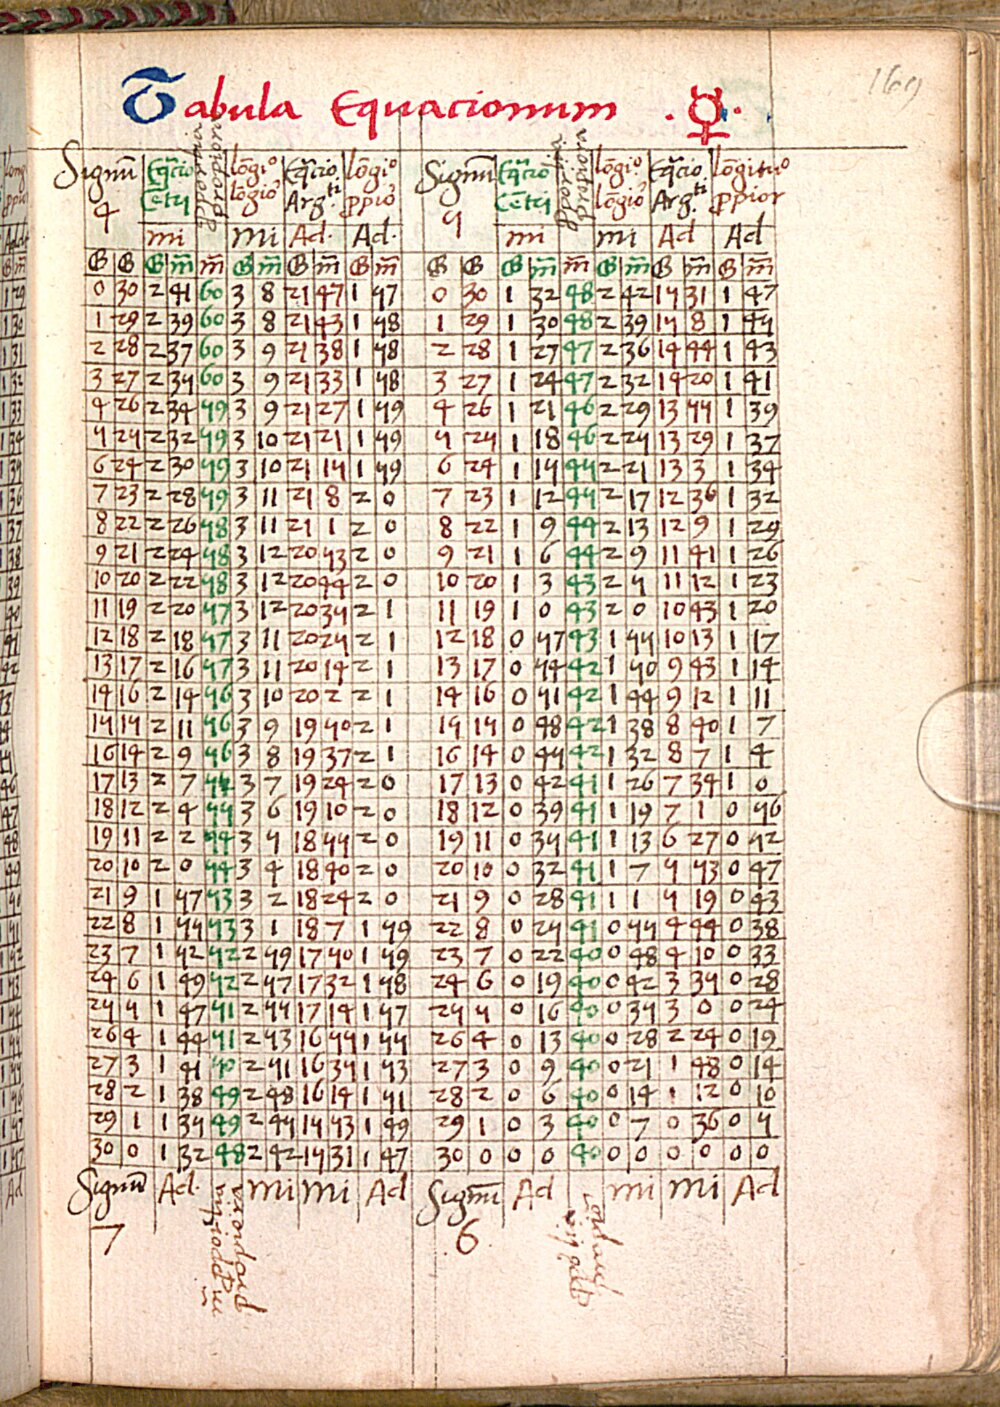 169
Tabula Equacionum ☿
Signū 4 Eq̄cio Cētri ꝓporcia propiora lōgio lōgio Eq̄cio Arg.ti lōgio ꝓpio Signū 5 Eq̄cio Cētri ꝓporcia propiora lōgio lōgio Eq̄cio Arg.ti lōgituo ꝓpior
mi mi Ad. Ad. mi mi Ad Ad
G G G m̄ m̄ G m̄ G m̄ G m̄ G G G m̄ m̄ G m̄ G m̄ G m̄
0 30 2 41 60 3 8 21 47 1 57 0 30 1 32 48 2 42 15 31 1 47
1 29 2 39 60 3 8 21 43 1 58 1 29 1 30 48 2 39 15 8 1 45
2 28 2 37 60 3 9 21 38 1 58 2 28 1 27 47 2 36 14 44 1 43
3 27 2 35 60 3 9 21 33 1 58 3 27 1 24 47 2 32 14 20 1 41
4 26 2 34 59 3 9 21 27 1 59 4 26 1 21 46 2 29 13 55 1 39
5 25 2 32 59 3 10 21 21 1 59 5 25 1 18 46 2 25 13 29 1 37
6 24 2 30 59 3 10 21 15 1 59 6 24 1 15 45 2 21 13 3 1 34
7 23 2 28 59 3 11 21 8 2 0 7 23 1 12 45 2 17 12 36 1 32
8 22 2 26 58 3 11 21 1 2 0 8 22 1 9 44 2 13 12 9 1 29
9 21 2 24 58 3 12 20 53 2 0 9 21 1 6 44 2 9 11 41 1 26
10 20 2 22 58 3 12 20 44 2 0 10 20 1 3 43 2 5 11 12 1 23
11 19 2 20 57 3 12 20 35 2 1 11 19 1 0 43 2 0 10 43 1 20
12 18 2 18 57 3 11 20 25 2 1 12 18 0 57 43 1 55 10 13 1 17
13 17 2 16 57 3 11 20 14 2 1 13 17 0 54 42 1 50 9 43 1 14
14 16 2 14 56 3 10 20 2 2 1 14 16 0 51 42 1 44 9 12 1 11
15 15 2 11 56 3 9 19 50 2 1 15 15 0 48 42 1 38 8 40 1 7
16 14 2 9 56 3 8 19 37 2 1 16 14 0 45 42 1 32 8 7 1 4
17 13 2 7 55 3 7 19 24 2 0 17 13 0 42 41 1 26 7 34 1 0
18 12 2 4 55 3 6 19 10 2 0 18 12 0 39 41 1 19 7 1 0 56
19 11 2 2 54 3 5 18 55 2 0 19 11 0 35 41 1 13 6 27 0 52
20 10 2 0 54 3 4 18 40 2 0 20 10 0 32 41 1 7 5 53 0 47
21 9 1 57 53 3 2 18 24 2 0 21 9 0 28 41 1 1 5 19 0 43
22 8 1 55 53 3 1 18 7 1 59 22 8 0 25 41 0 55 4 44 0 38
23 7 1 52 52 2 59 17 50 1 59 23 7 0 22 40 0 48 4 10 0 33
24 6 1 49 52 2 57 17 32 1 58 24 6 0 19 40 0 42 3 35 0 28
25 5 1 47 51 2 55 17 14 1 57 25 5 0 16 40 0 35 3 0 0 24
26 4 1 44 51 2 53 16 55 1 55 26 4 0 13 40 0 28 2 24 0 19
27 3 1 41 50 2 51 16 35 1 53 27 3 0 9 40 0 21 1 48 0 14
28 2 1 38 49 2 48 16 14 1 51 28 2 0 6 40 0 14 1 12 0 10
29 1 1 35 49 2 45 15 53 1 49 29 1 0 3 40 0 7 0 36 0 5
30 0 1 32 48 2 42 15 31 1 47 30 0 0 0 40 0 0 0 0 0 0
Signū Ad. mi mi Ad Signū Ad mi mi Ad
7 6